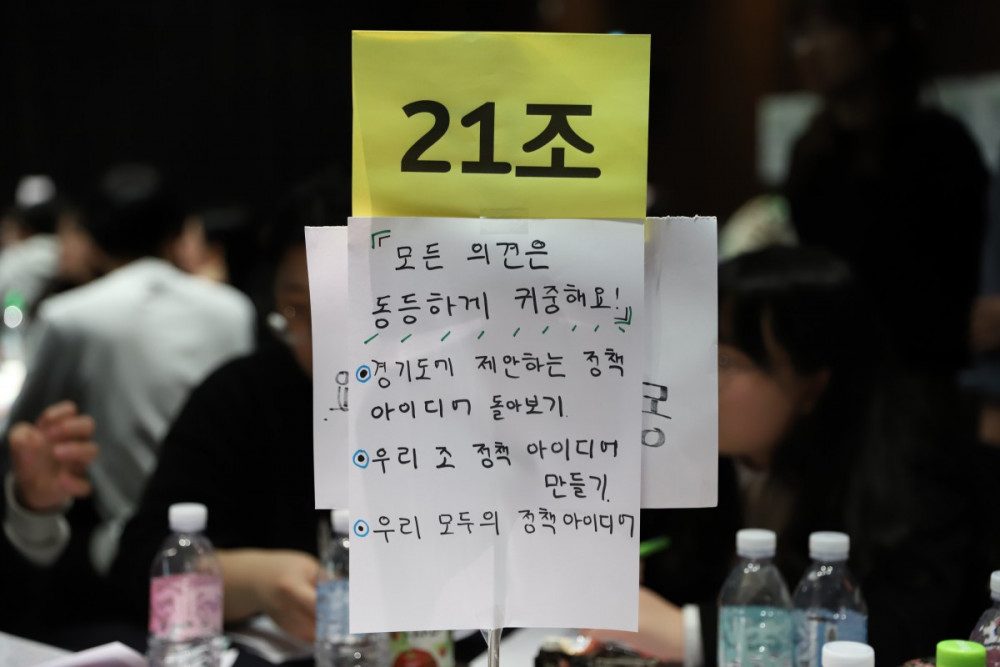 21조
『모든 의견은
동등하게 귀중해요!』
경기도에 제안하는 정책
아이디어 돌아보기.
우리 조 정책 아이디어
만들기.
우리 모두의 정책아이디어